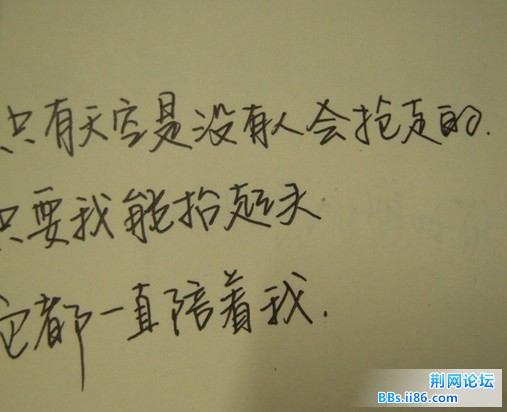 只有天空是没有人会抢走的.
只要我能抬起头
它都一直陪着我.
荆网论坛
BBs.ii86.com